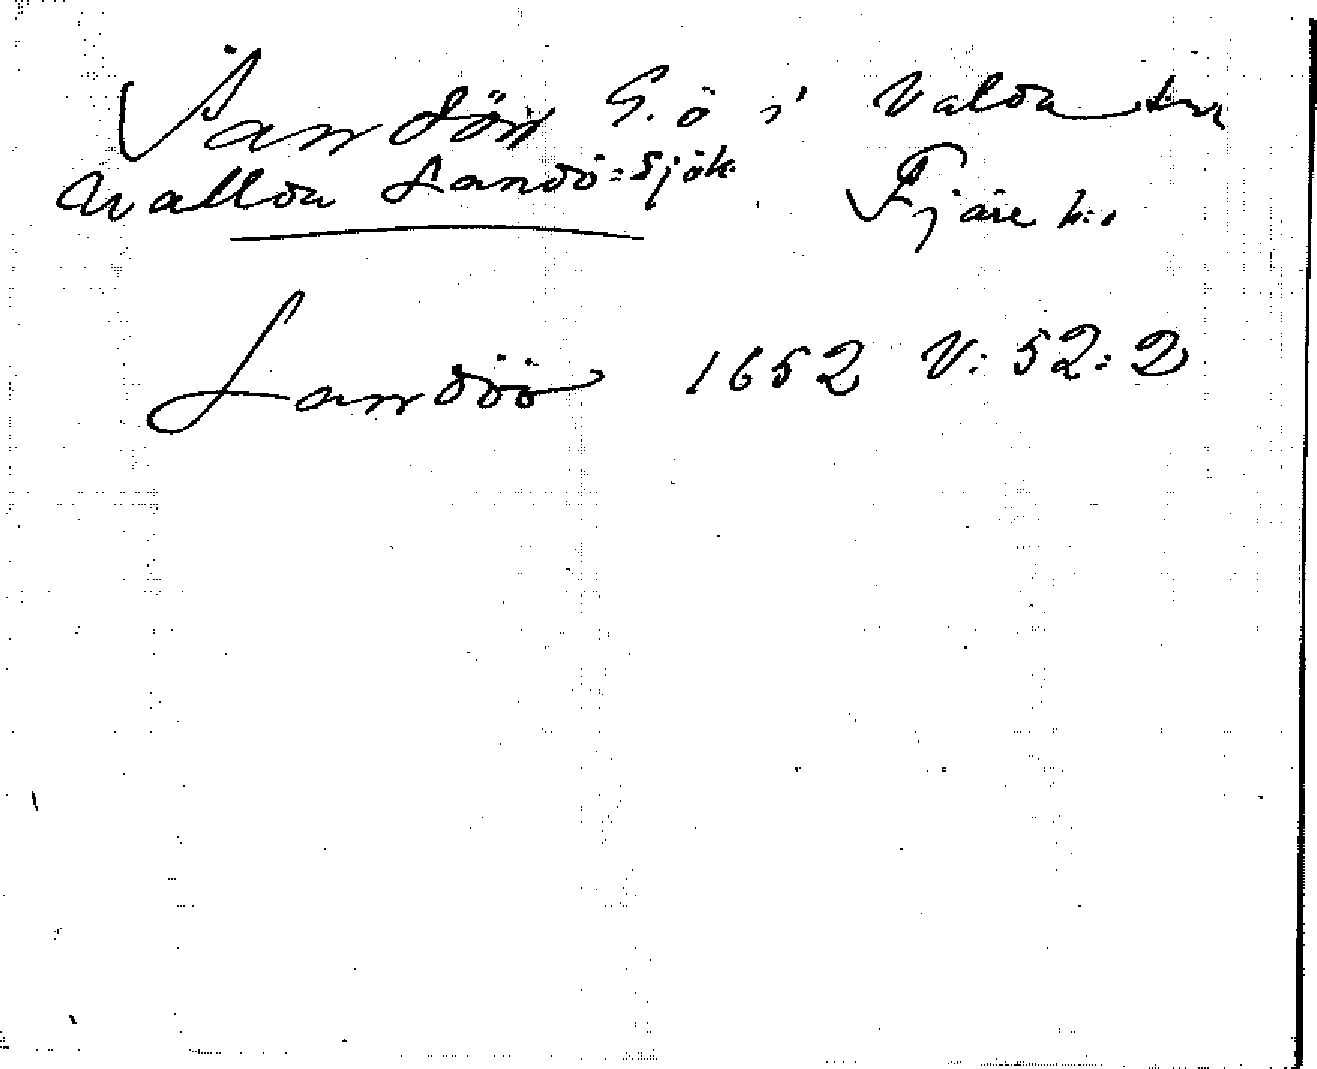 Sandön G. ö i Valda sn
Wallda Sandö: Sjök. Fjäre h:d
Sandöö 1652 V: 52: 2